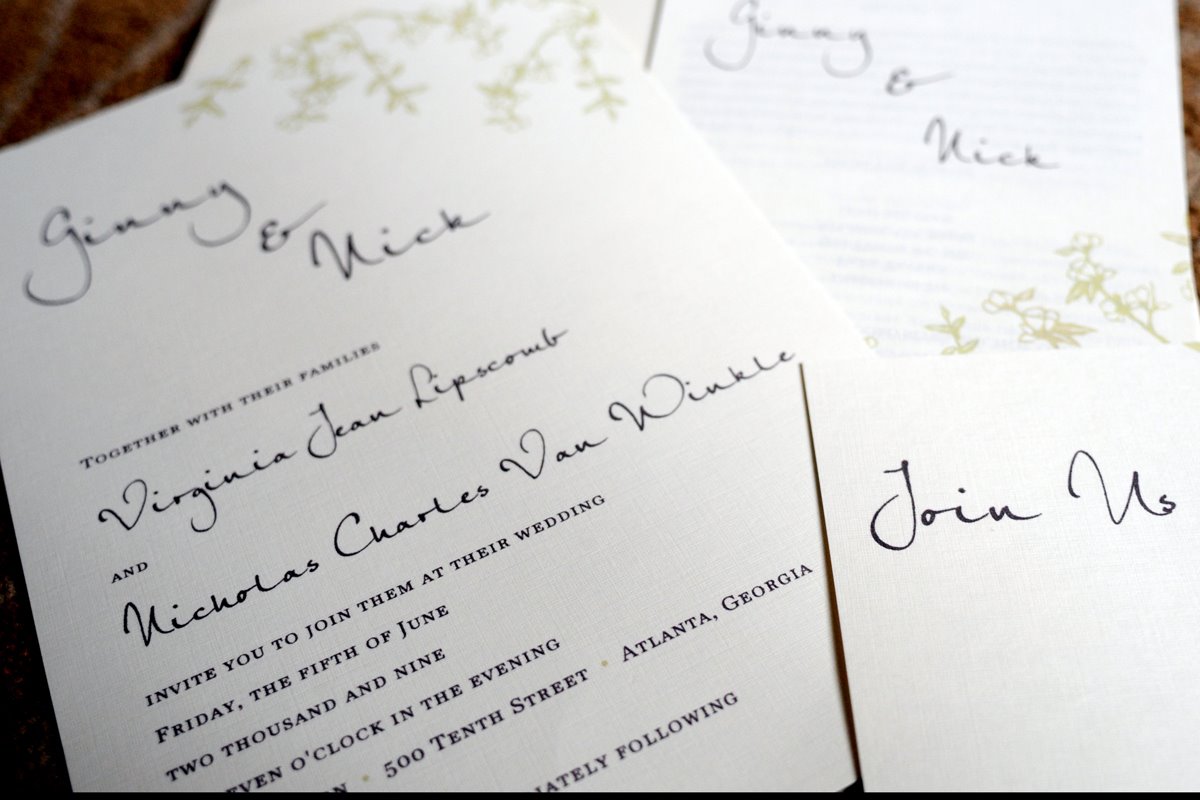 Ginny
&
Nick
TOGETHER WITH THEIR FAMILIES
Virginia Jean Lipscomb
AND
Nicholas Charles Van Winkle
INVITE YOU TO JOIN THEM AT THEIR WEDDING
FRIDAY, THE FIFTH OF JUNE
TWO THOUSAND AND NINE
EVEN O'CLOCK IN THE EVENING
ON • 500 TENTH STREET • ATLANTA, GEORGIA
IATELY FOLLOWING
Ginny
&
Nick
Join Us